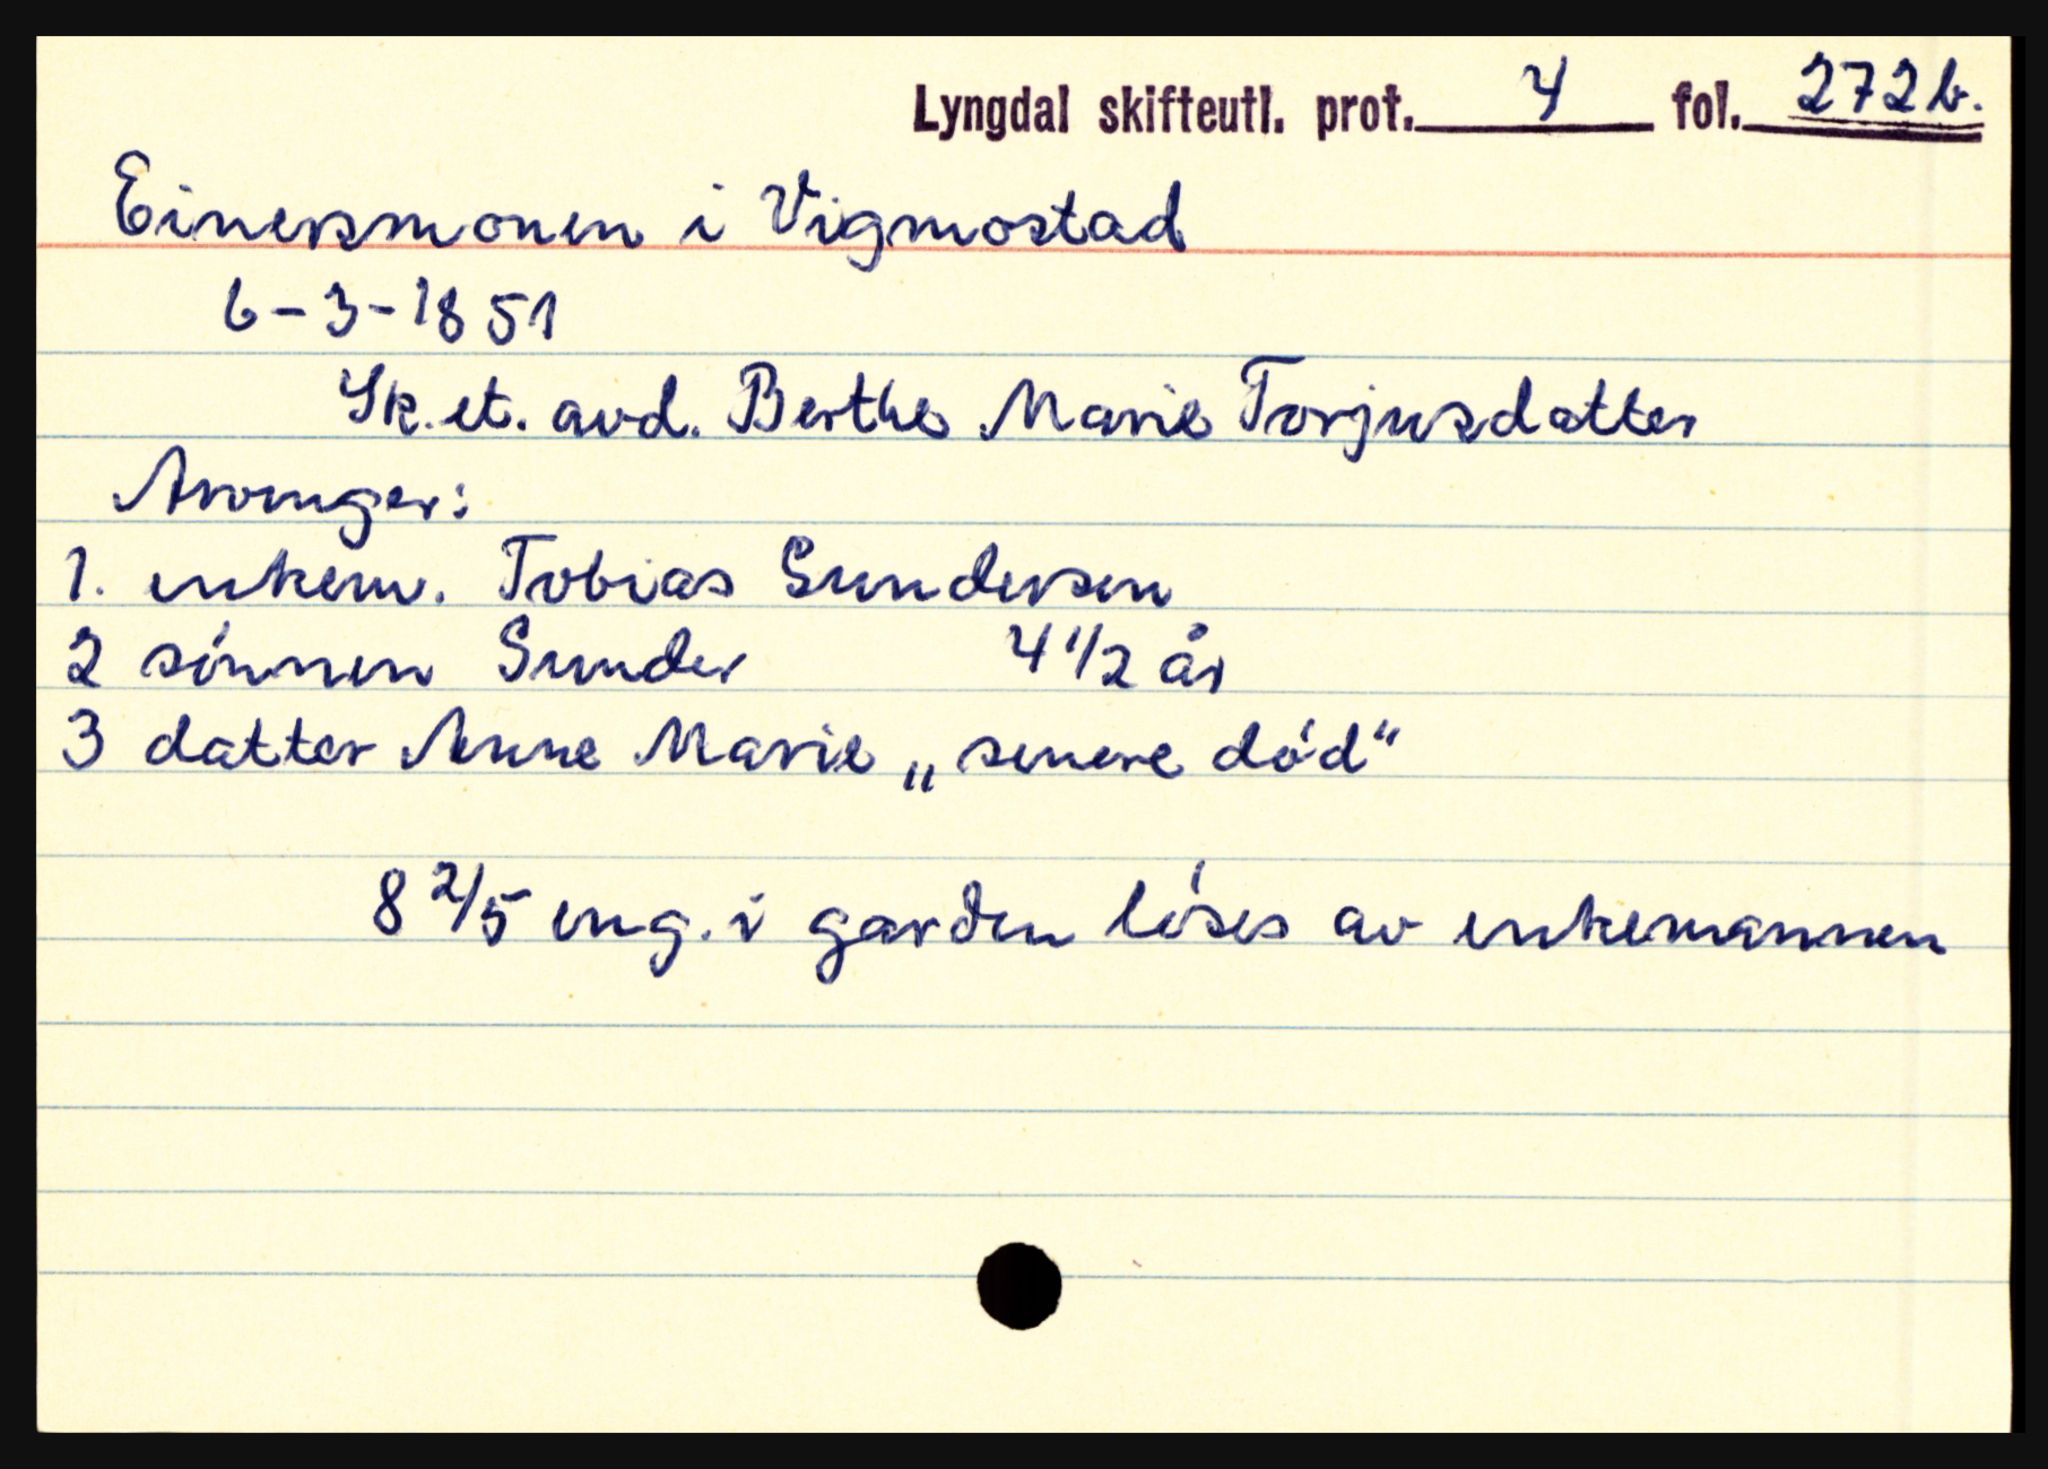 Lyngdal skifteutl. prot. 4 fol. 272b.
Einersmonen i Vigmostad
6-3-1851
Sk. et. avd. Berthe Marie Torjusdatter
Arvinger:
1. enkem. Tobias Gundersen
2 sønnen Gunder 4 1/2 år
3 datter Anne Marie „senere død“
8 2/5 eng. i garden løses av enkemannen